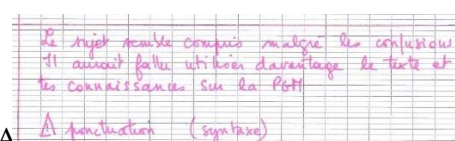 Le sujet semble compris malgré les confusions
Il aurait fallu utiliser davantage le texte et
tes connaissances sur la PGM
⚠ ponctuation (syntaxe)
Δ